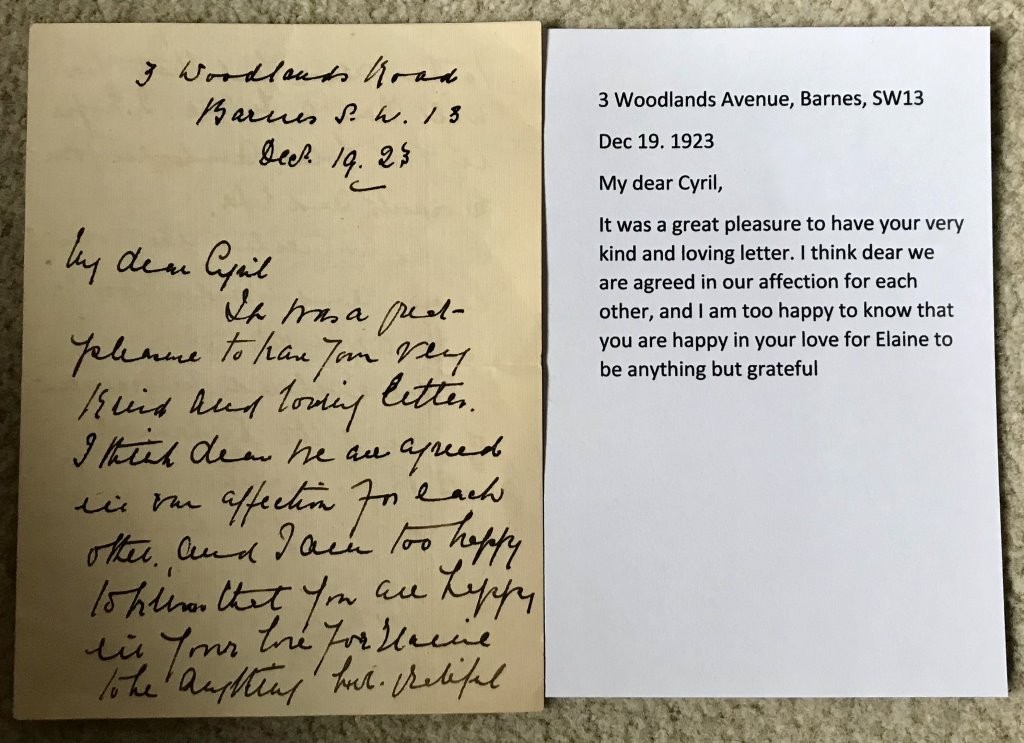 3 Woodlands Road
Barnes S. W. 13
Dec. 19. 23
My dear Cyril
It was a great
pleasure to have your very
kind and loving letter.
I think dear we are agreed
in our affection for each
other, and I am too happy
to know that you are happy
in your love for Elaine
to be anything but grateful
3 Woodlands Avenue, Barnes, SW13
Dec 19. 1923
My dear Cyril,
It was a great pleasure to have your very
kind and loving letter. I think dear we
are agreed in our affection for each
other, and I am too happy to know that
you are happy in your love for Elaine to
be anything but grateful